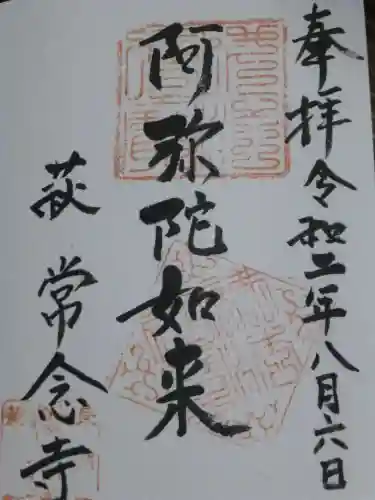 奉拝 令和二年八月六日
阿弥陀如来
萩 常念寺